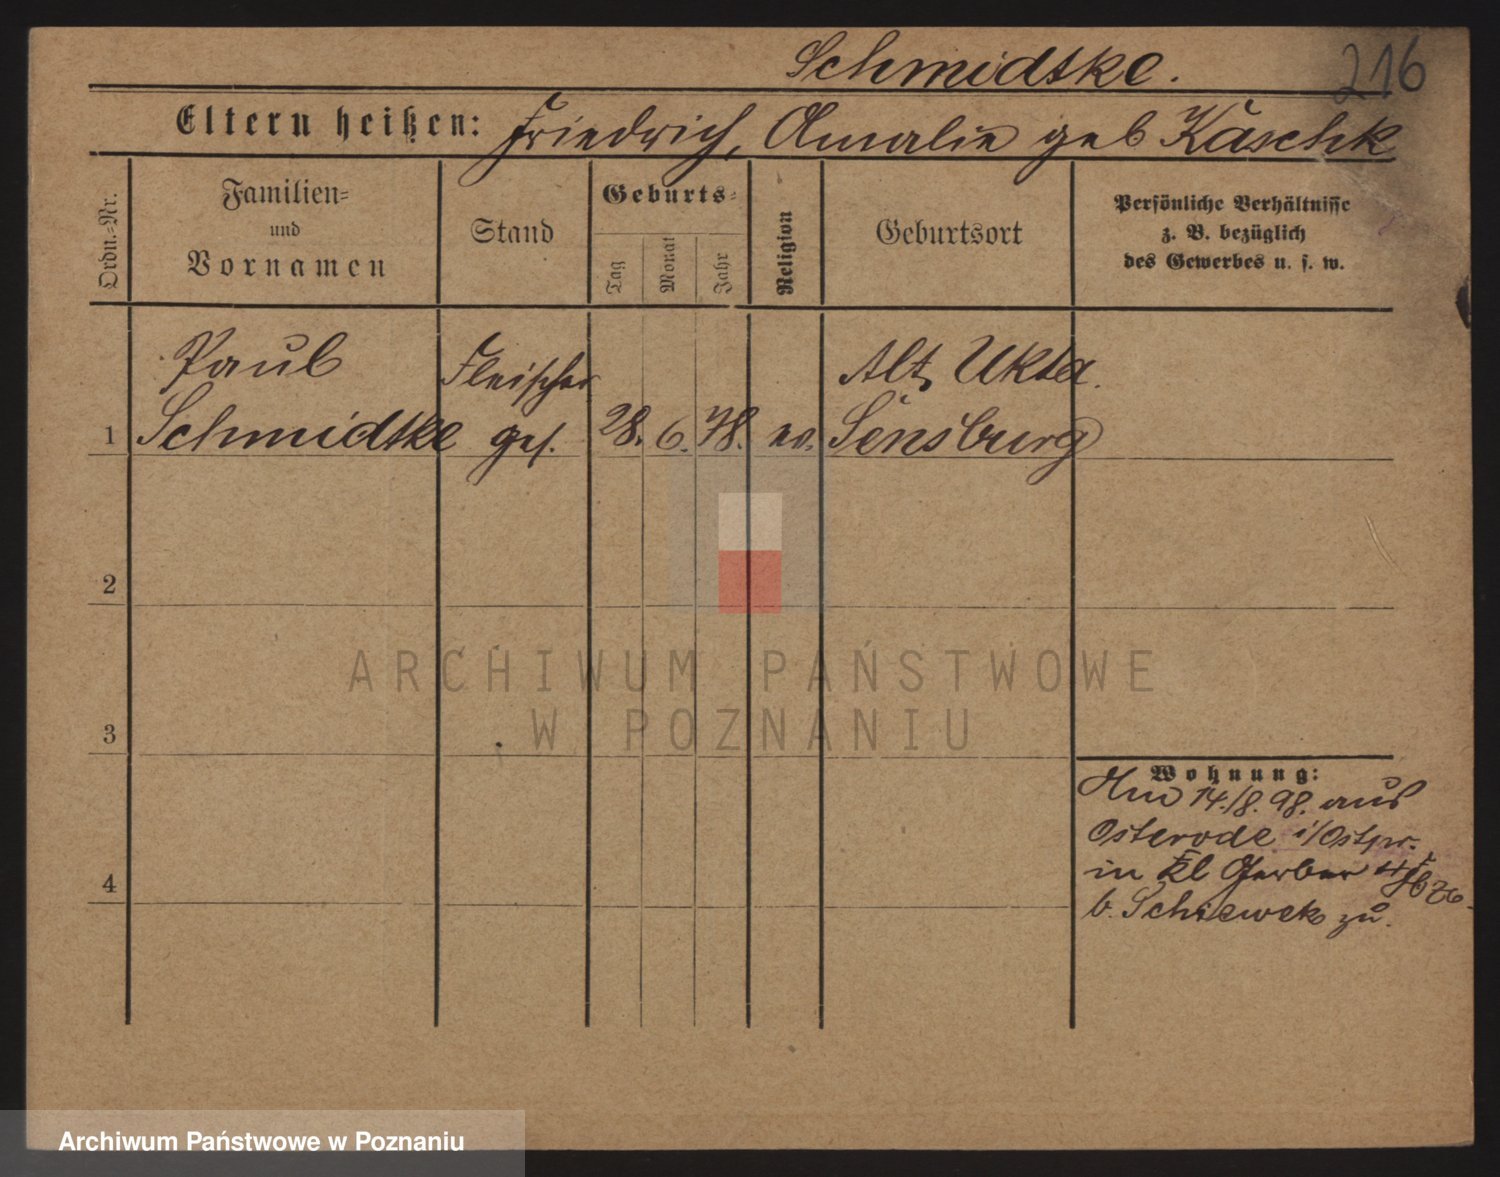 Schmidtke.
216
Eltern heißen: Friedrich, Amalie geb Käschk
Ordn.-Nr.
Familien-
und
Vornamen
Stand
Geburts-
Tag
Monat
Jahr
Religion
Geburtsort
Persönliche Verhältnisse
z. B. bezüglich
des Gewerbes u. s. w.
Paul
Fleischer
Alt Ukta.
1 Schmidtke ges. 28. 6. 78. ev. Sensburg
2
ARCHIWUM PAŃSTWOWE
W POZNANIU
3
Wohnung:
14./8. 98. aus
Osterode i/Ostpr.
4
in Kl Gerber
b. Schiewek zu.
Archiwum Państwowe w Poznaniu